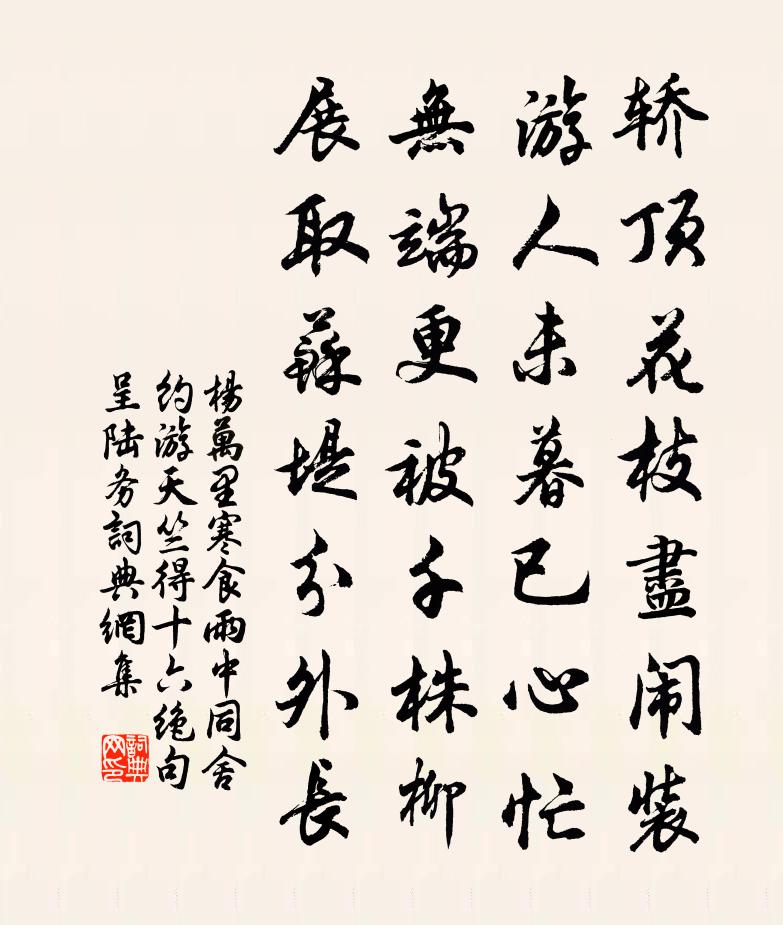 轿顶花枝盡闹装
游人未暮已心忙
無端更被千株柳
展取蘇堤分外長
楊萬里寒食雨中同舍
约游天竺得十六绝句
呈陆务詞典網集
詞典网印